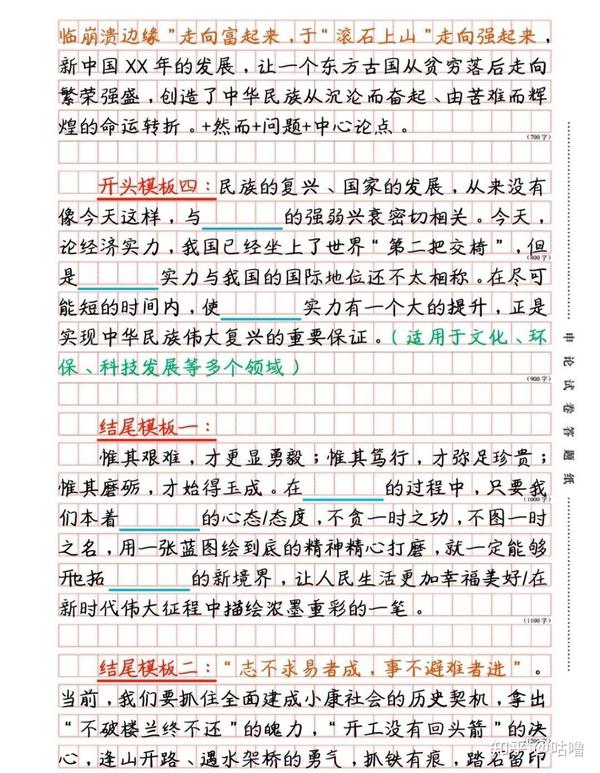 临崩溃边缘”走向富起来，于“滚石上山”走向强起来，
新中国XX年的发展，让一个东方古国从贫穷落后走向
繁荣强盛，创造了中华民族从沉沦而奋起、由苦难而辉
煌的命运转折。+然而+问题+中心论点。
(700字)
开头模板四：民族的复兴、国家的发展，从来没有
像今天这样，与 的强弱兴衰密切相关。今天，
论经济实力，我国已经坐上了世界“第二把交椅”，但
(800字)
是 实力与我国的国际地位还不太相称。在尽可
能短的时间内，使 实力有一个大的提升，正是
实现中华民族伟大复兴的重要保证。（适用于文化、环
保、科技发展等多个领域）
(900字)
结尾模板一：
惟其艰难，才更显勇毅；惟其笃行，才弥足珍贵；
惟其磨砺，才始得玉成。在 的过程中，只要我
(1000字)
们本着 的心态/态度，不贪一时之功，不图一时
之名，用一张蓝图绘到底的精神精心打磨，就一定能够
开拓 的新境界，让人民生活更加幸福美好/在
新时代伟大征程中描绘浓墨重彩的一笔。
(1100字)
结尾模板二：“志不求易者成，事不避难者进”。
当前，我们要抓住全面建成小康社会的历史契机，拿出
“不破楼兰终不还”的魄力，“开工没有回头箭”的决
心，逢山开路、遇水架桥的勇气，抓铁有痕，踏名留印
申论试卷答题纸
知乎 @咕噜